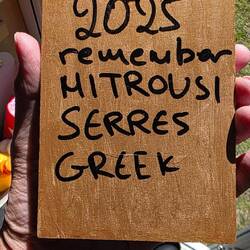 2025
remember
MITROUSI
SERRES
GREEK